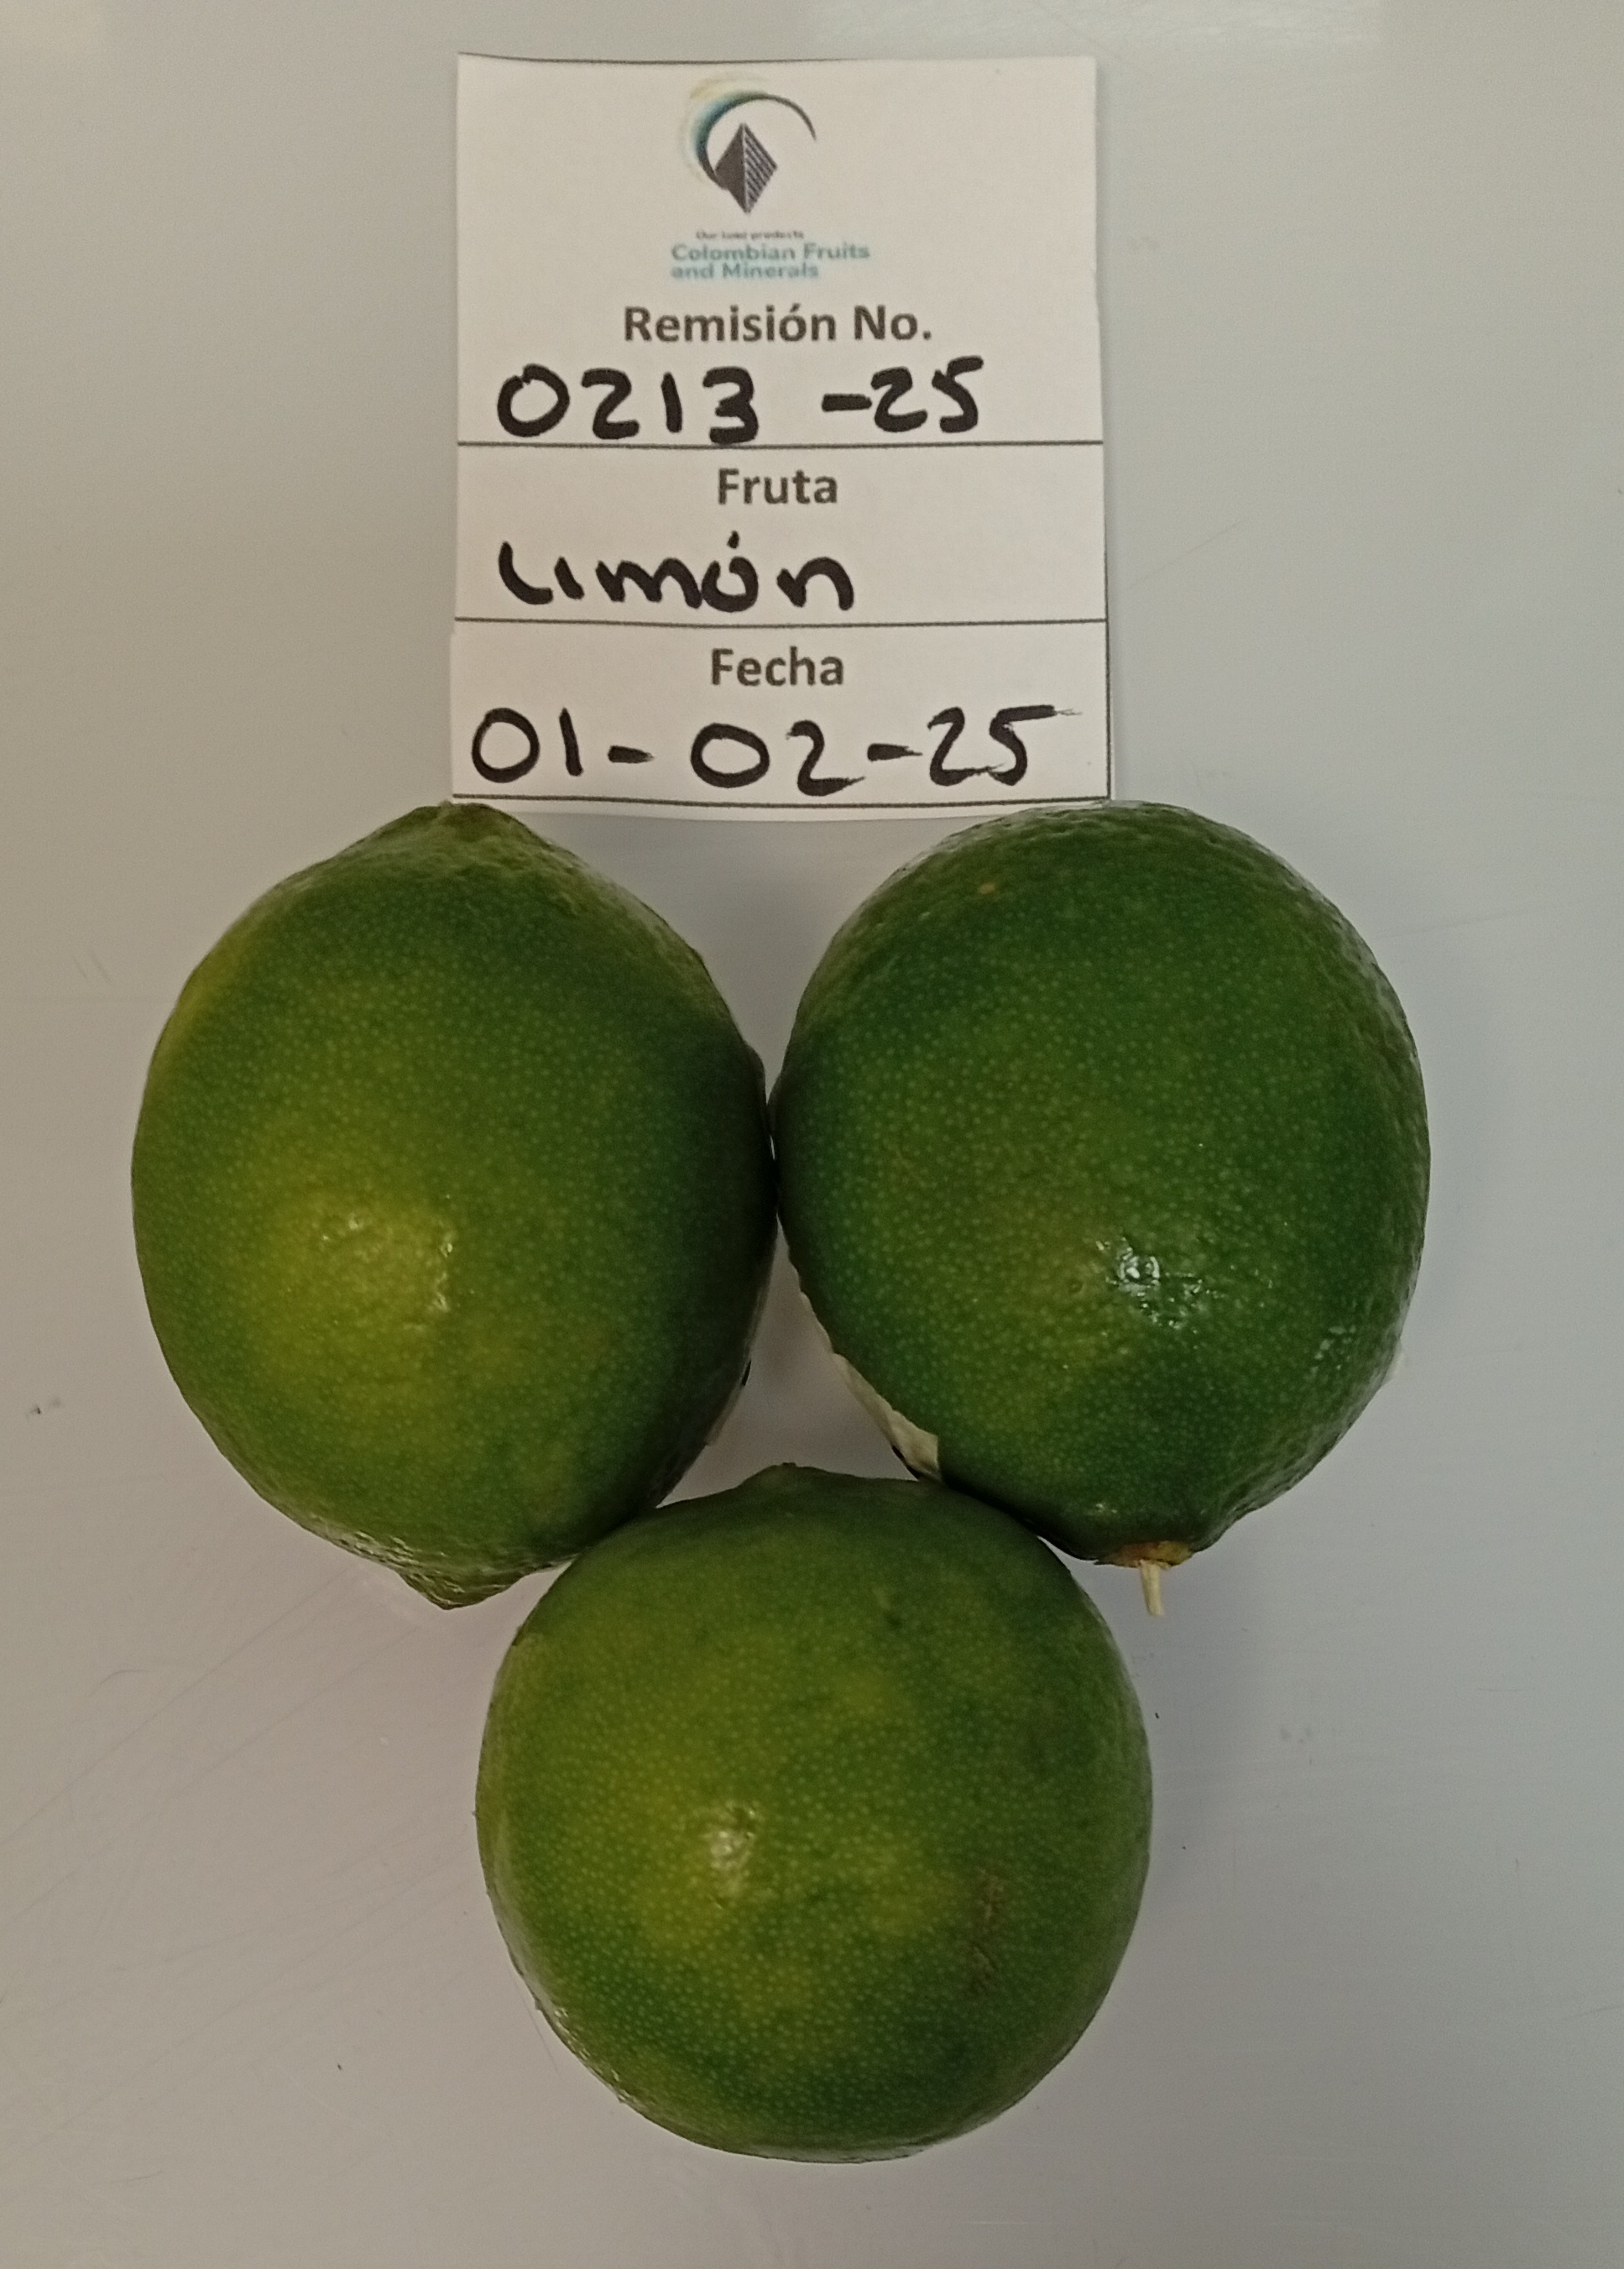 Our Land products
Colombian Fruits
and Minerals
Remisión No.
0213 -25
Fruta
Limón
Fecha
01-02-25